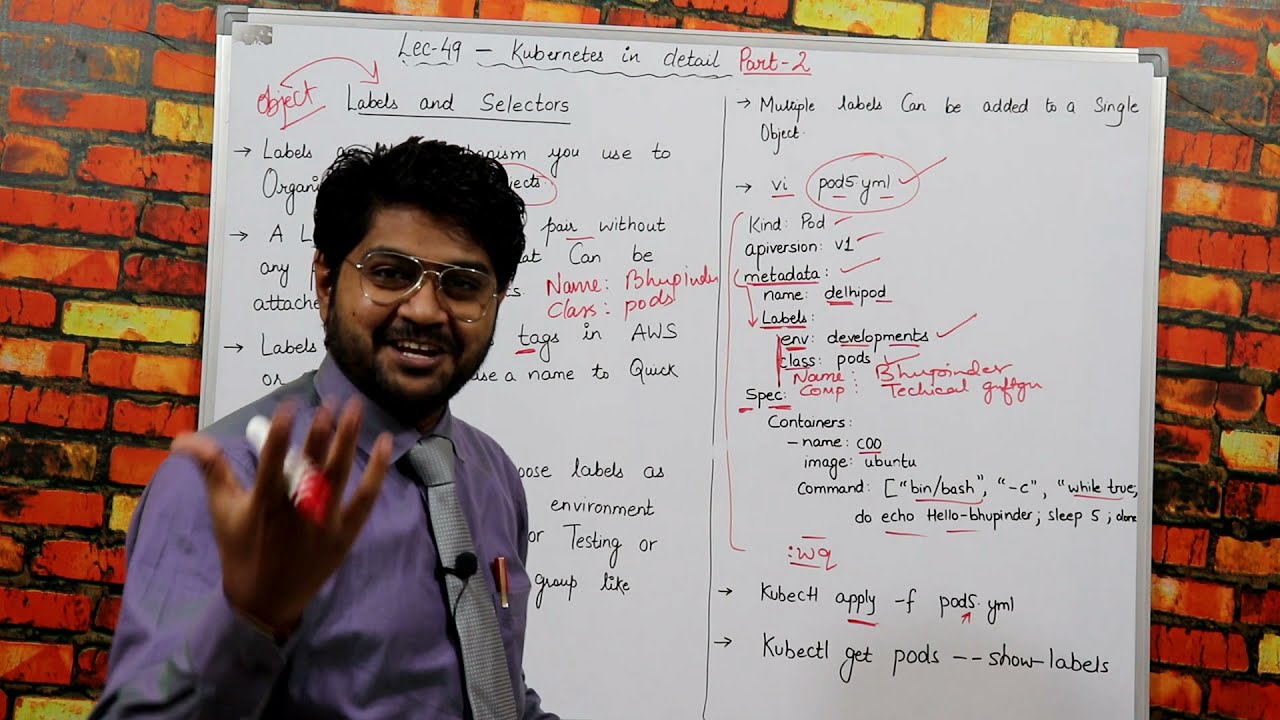 Lec-49 - Kubernetes in detail Part-2
Object Labels and Selectors
→ Labels
you use to
Organi
→ A
pair without
any
at Can be
attache
Name: Bhupinder
Class: pods
→ Labels
tags in AWS
or
use a name to Quick
labels as
environment
or Testing or
group like
→ Multiple labels Can be added to a Single
Object.
→ vi pod5.yml
Kind: Pod
apiversion: v1
metadata:
name: delhipod
Labels:
env: developments
class: pods
Name: Bhupinder
Comp: Techical guftgu
Spec:
Containers:
- name: c00
image: ubuntu
Command: ["bin/bash", "-c", "while true;
do echo Hello-bhupinder; Sleep 5; done
:wq
→ Kubectl apply -f pod5.yml
→ Kubectl get pods --show-labels